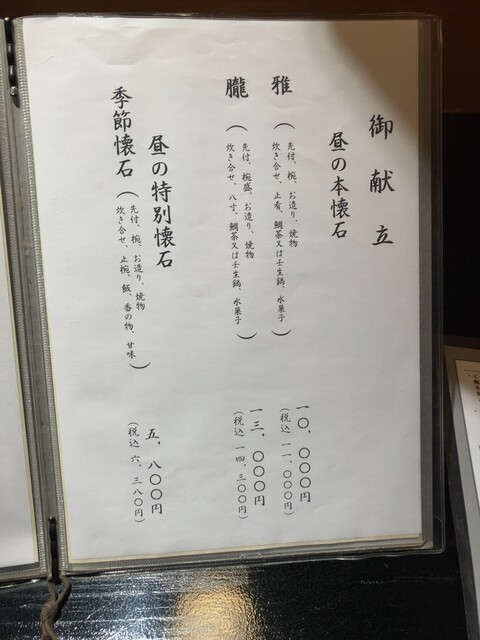 御献立
昼の本懐石
雅
(先付、椀、お造り、焼物
炊き合せ、止肴、鯛茶又は壬生鍋、水菓子)
一〇、〇〇〇円
(税込 一一、〇〇〇円)
朧
(先付、椀盛、お造り、焼物
炊き合せ、八寸、鯛茶又は壬生鍋、水菓子)
一三、〇〇〇円
(税込 一四、三〇〇円)
昼の特別懐石
季節懐石
(先付、椀、お造り、焼物
炊き合せ、止椀、飯、香の物、甘味)
五、八〇〇円
(税込 六、三八〇円)